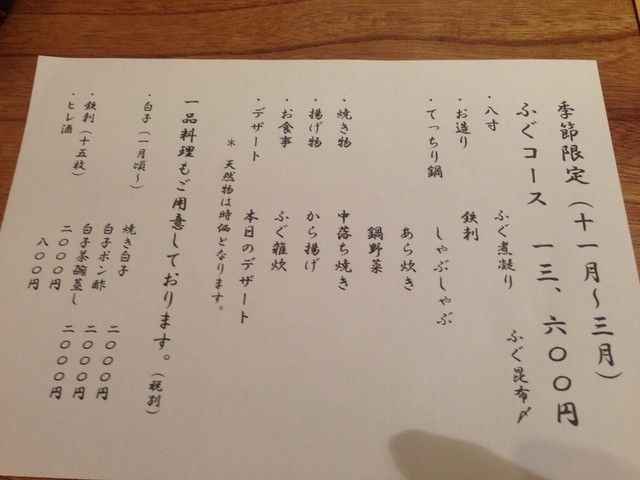 季節限定(十一月〜三月)
ふぐコース 一三、六〇〇円
・八寸 ふぐ煮凝り ふぐ昆布〆
・お造り 鉄利
・てっちり鍋 しゃぶしゃぶ
あら炊き
鍋野菜
・焼き物 中落ち焼き
・揚げ物 から揚げ
・お食事 ふぐ雑炊
・デザート 本日のデザート
* 天然物は時価となります。
一品料理もご用意しております。(税別)
・白子(一月頃〜) 焼き白子 二〇〇〇円
白子ポン酢 二〇〇〇円
白子茶碗蒸し 二〇〇〇円
・鉄利(十五枚) 二〇〇〇円
・ヒレ酒 八〇〇円